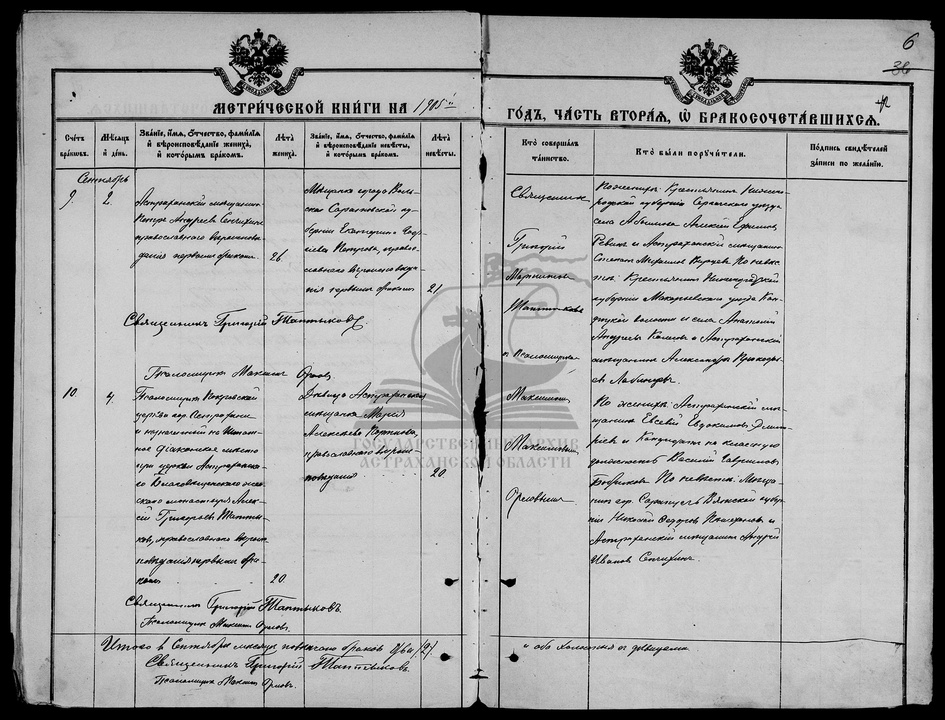 6
38
МЕТРИ́ЧЕСКОЙ КНИ́ГИ НА 1905 й
ГО́ДЪ, ЧА́СТЬ ВТОРА́Я, Ѡ БРАКОСОЧЕТА́ВШИХСЯ.
Сче́тъ бра́ковъ.
Мѣ́сяцъ и де́нь.
Зва́ніе, и́мя, ѻ́тчество, фами́лія
и҆ вѣроисповѣ́даніе жениха́,
и҆ кото́рымъ бра́комъ.
Лѣта̀ жениха́.
Зва́ніе, и́мя, ѻ́тчество, фами́лія
и҆ вѣроисповѣ́даніе невѣ́сты,
и҆ кото́рымъ бра́комъ.
Лѣта̀ невѣ́сты.
Кто̀ соверша́лъ
та́инство.
Кто̀ бы́ли поручи́тели.
По́дпись свидѣ́телей
за́писи по жела́нію.
Сентябрь
9.
2.
Астраханскій мещанинъ
Петръ Андреевъ Сенихинъ
православнаго вероиспове
данія первымъ бракомъ
26
Мещанка города Воль-
ска Саратовской гу-
берніи Екатерина
Петрова, право-
славнаго вероисповеда
нія первымъ бракомъ
21
Священникъ
Григорій
Мартиновъ
Таптыковъ
и Псаломщикъ
По женихе: Крестьянинъ Ниже-
родской губерніи Сергачскаго уезда
села Алексей Ефимовъ
и Астраханскій мещанинъ
По невес-
те: Крестьянинъ Нижегородской
губерніи Макарьевскаго уезда
волости и села Анатолій
Андреевъ и Астраханскій
мещанинъ Александръ
Священникъ Григорій Таптыковъ.
Псаломщикъ Максимъ Орловъ.
10
4.
Псаломщикъ Покровской
церкви гор. Астрахани
и назначенный на штат-
ное діаконское место
при церкви Астраханска-
го Благовещенскаго жен-
скаго монастыря Алек-
сій Григорьевъ Тапты-
ковъ, православнаго веро-
исповеданія первымъ бра-
комъ
20
Девица Астраханская
мещанка Марія
Алексеева
православнаго вероис-
поведанія
20.
Максимъ
Максимовъ
Орловымъ
По женихе: Астраханскій ме-
щанинъ Евсевій Евдокимовъ Дмит-
ріевъ и Кандидатъ на классную
должность Василій Гавриловъ
По невесте: Меща-
нинъ гор. Сарапуля Вятской губер
ніи Николай Федоровъ и
Астраханскій мещанинъ Андрей
Ивановъ Сенихинъ.
Священникъ Григорій Таптыковъ
Псаломщикъ Максимъ Орловъ.
Итого в Сентябре месяце повенчано браковъ два /2/.
и оба холостые съ девицами.
Священникъ Григорій Таптыковъ
Псаломщикъ Максимъ Орловъ.
ГОСУДАРСТВЕННЫЙ АРХИВ
АСТРАХАНСКОЙ ОБЛАСТИ